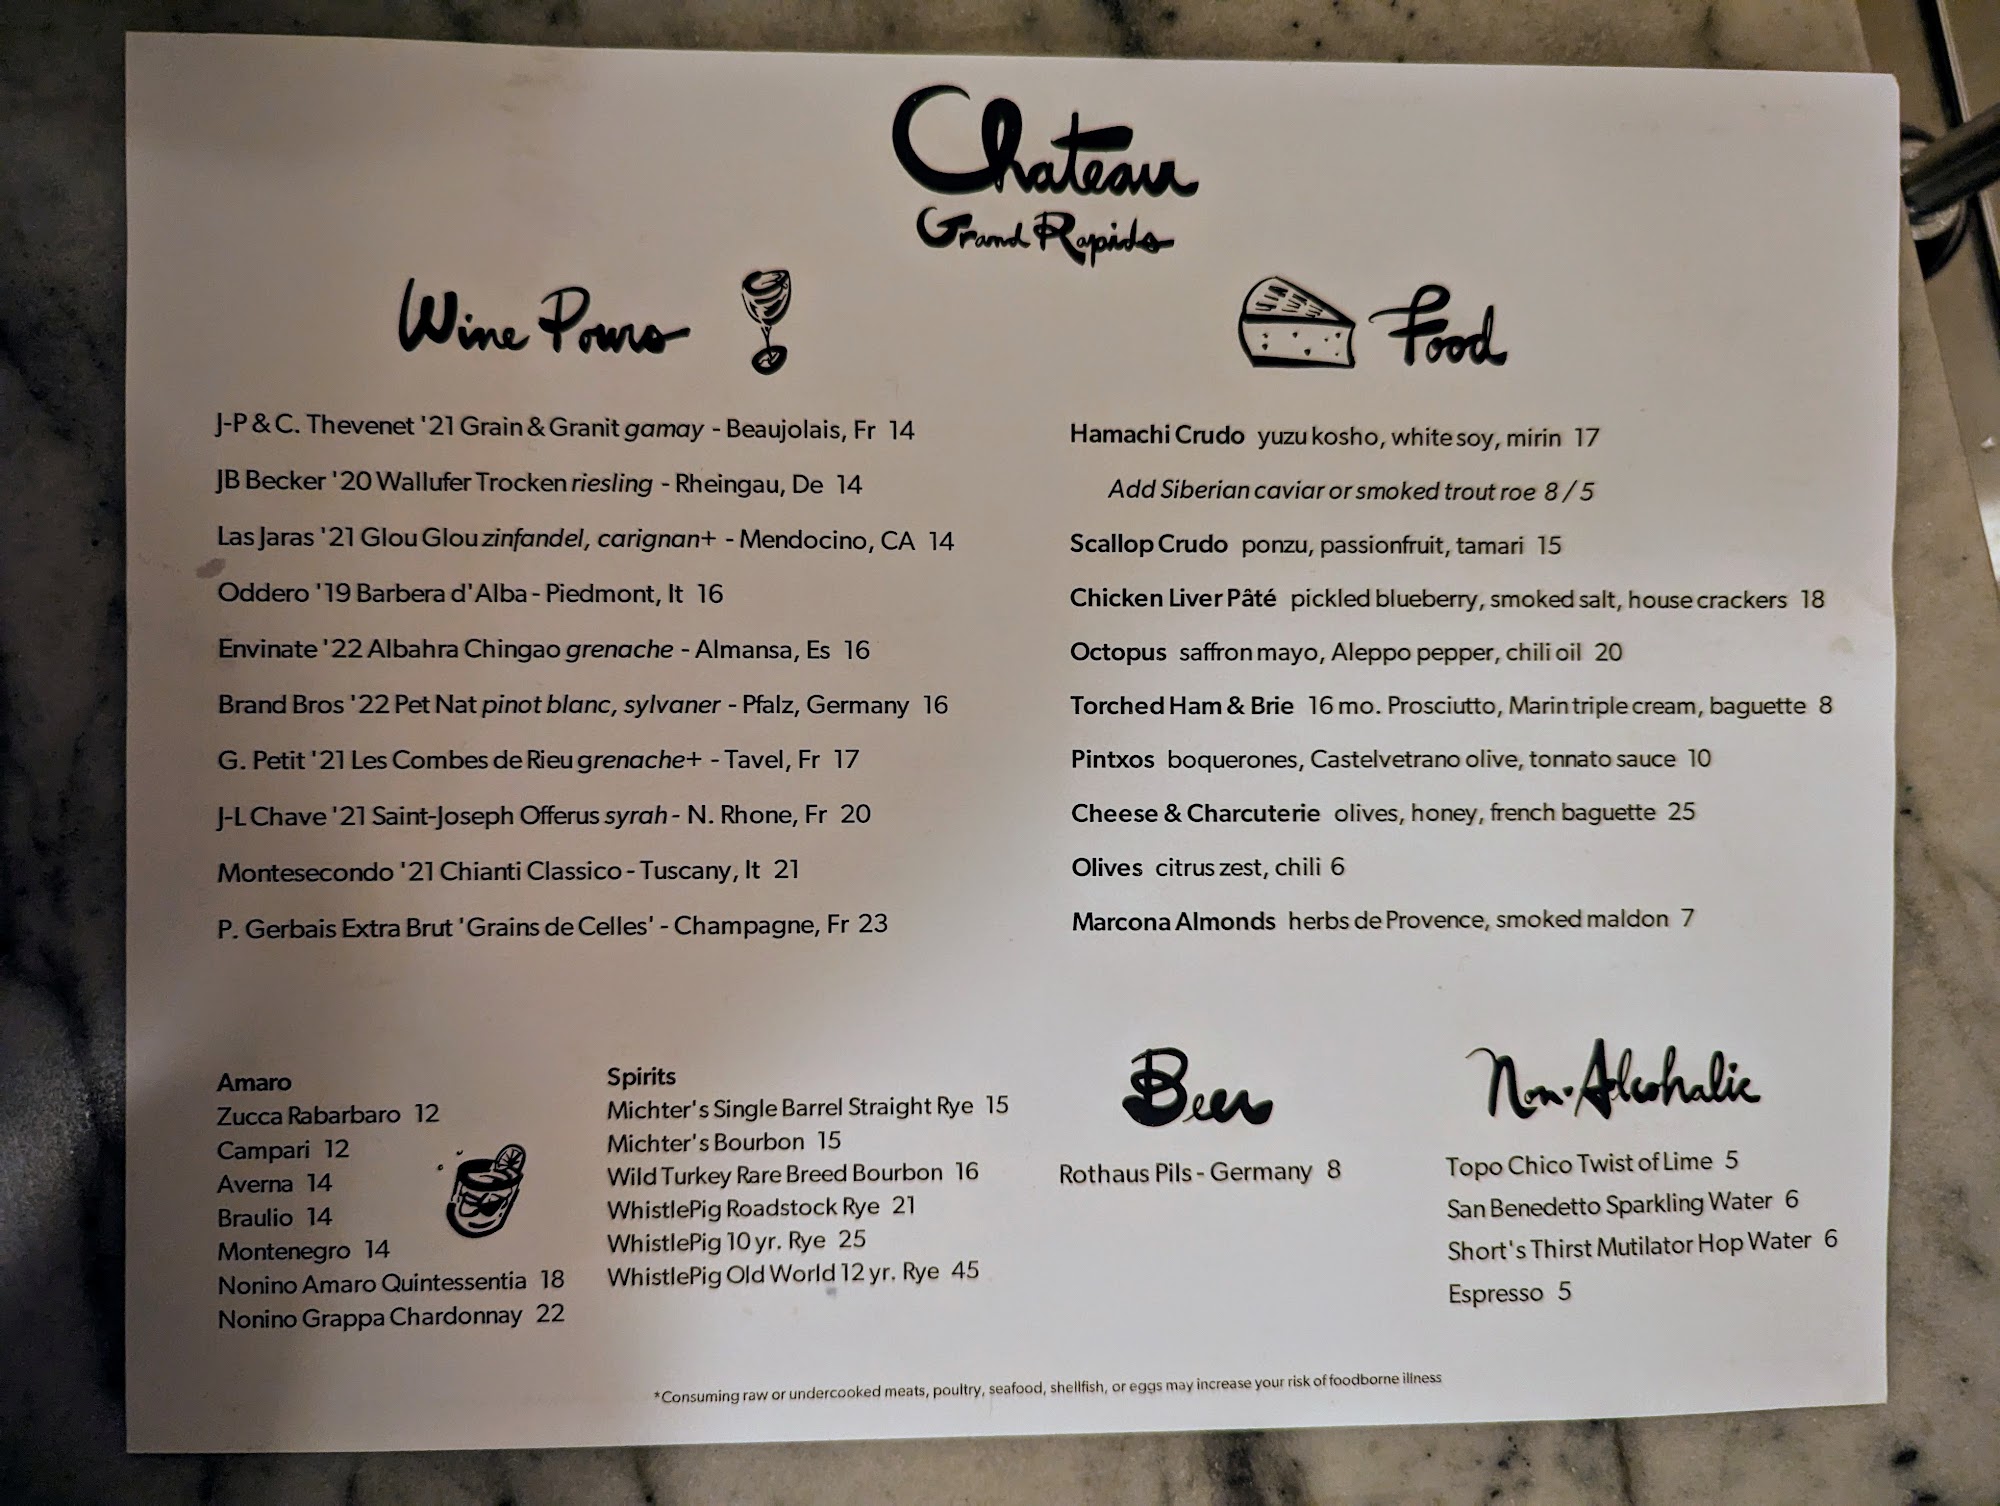 Chateau
Grand Rapids
Wine Pours
J-P & C. Thevenet '21 Grain & Granit gamay - Beaujolais, Fr 14
JB Becker '20 Wallufer Trocken riesling - Rheingau, De 14
Las Jaras '21 Glou Glou zinfandel, carignan+ - Mendocino, CA 14
Oddero '19 Barbera d'Alba - Piedmont, It 16
Envinate '22 Albahra Chingao grenache - Almansa, Es 16
Brand Bros '22 Pet Nat pinot blanc, sylvaner - Pfalz, Germany 16
G. Petit '21 Les Combes de Rieu grenache+ - Tavel, Fr 17
J-L Chave '21 Saint-Joseph Offerus syrah - N. Rhone, Fr 20
Montesecondo '21 Chianti Classico - Tuscany, It 21
P. Gerbais Extra Brut 'Grains de Celles' - Champagne, Fr 23
Food
Hamachi Crudo yuzu kosho, white soy, mirin 17
Add Siberian caviar or smoked trout roe 8 / 5
Scallop Crudo ponzu, passionfruit, tamari 15
Chicken Liver Pâté pickled blueberry, smoked salt, house crackers 18
Octopus saffron mayo, Aleppo pepper, chili oil 20
Torched Ham & Brie 16 mo. Prosciutto, Marin triple cream, baguette 8
Pintxos boquerones, Castelvetrano olive, tonnato sauce 10
Cheese & Charcuterie olives, honey, french baguette 25
Olives citrus zest, chili 6
Marcona Almonds herbs de Provence, smoked maldon 7
Amaro
Zucca Rabarbaro 12
Campari 12
Averna 14
Braulio 14
Montenegro 14
Nonino Amaro Quintessentia 18
Nonino Grappa Chardonnay 22
Spirits
Michter's Single Barrel Straight Rye 15
Michter's Bourbon 15
Wild Turkey Rare Breed Bourbon 16
WhistlePig Roadstock Rye 21
WhistlePig 10 yr. Rye 25
WhistlePig Old World 12 yr. Rye 45
Beer
Rothaus Pils - Germany 8
Non-Alcoholic
Topo Chico Twist of Lime 5
San Benedetto Sparkling Water 6
Short's Thirst Mutilator Hop Water 6
Espresso 5
*Consuming raw or undercooked meats, poultry, seafood, shellfish, or eggs may increase your risk of foodborne illness